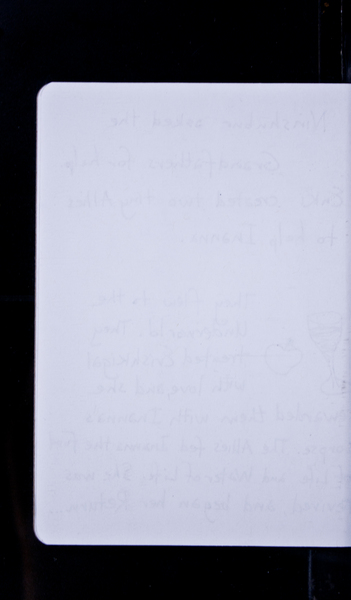 Ninshubur asked the
Grandfathers for help
Enki created two tiny Allies
to help Inanna.
They flew to the
Underworld. They
treated Ereshkigal
with love and she
rewarded them with Inanna's
corpse. The Allies fed Inanna the Food
of Life and Water of Life. She was
Revived and began her Return...